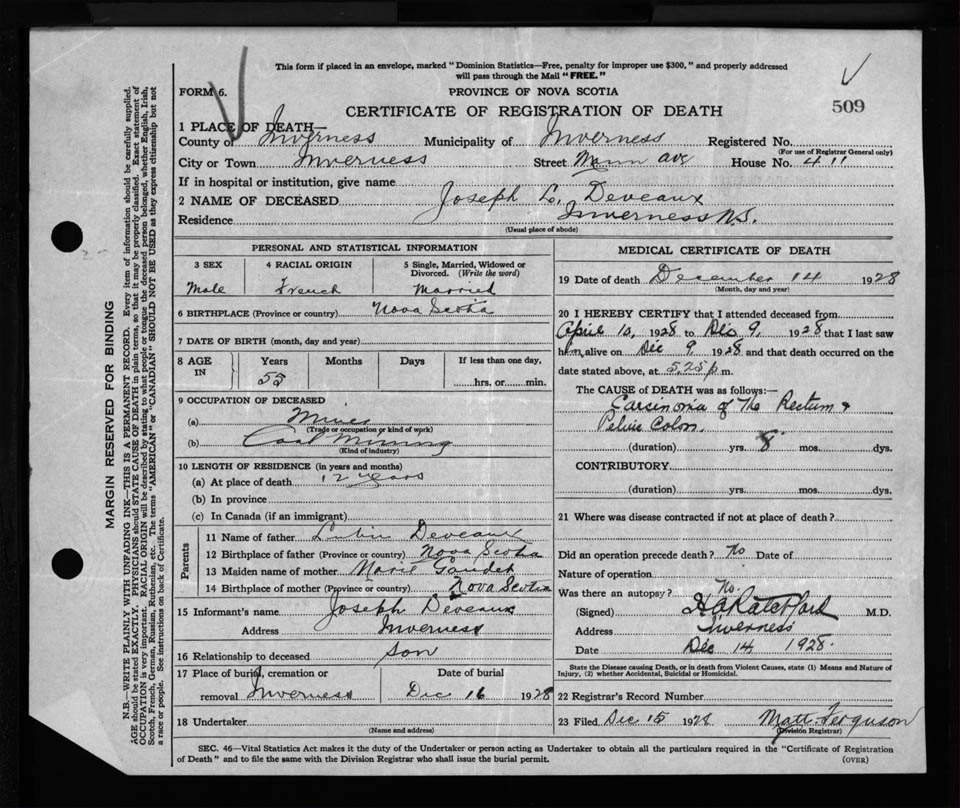 This form if placed in an envelope, marked "Dominion Statistics—Free, penalty for improper use $300," and properly addressed
will pass through the Mail "FREE."
FORM 6.
PROVINCE OF NOVA SCOTIA
CERTIFICATE OF REGISTRATION OF DEATH
509
1 PLACE OF DEATH—
County of Inverness Municipality of Inverness Registered No.
(For use of Registrar General only)
City or Town Inverness Street Main ave House No. 411
If in hospital or institution, give name
2 NAME OF DECEASED Joseph L. Deveaux
Residence Inverness N.S.
(Usual place of abode)
PERSONAL AND STATISTICAL INFORMATION
3 SEX 4 RACIAL ORIGIN 5 Single, Married, Widowed or
Divorced. (Write the word)
Male French Married
6 BIRTHPLACE (Province or country) Nova Scotia
7 DATE OF BIRTH (month, day and year)
8 AGE IN Years Months Days If less than one day,
55 hrs. or min.
9 OCCUPATION OF DECEASED
(a) Miner
(Trade or occupation or kind of work)
(b) Coal Mining
(Kind of industry)
10 LENGTH OF RESIDENCE (in years and months)
(a) At place of death 12 years
(b) In province
(c) In Canada (if an immigrant)
Parents
11 Name of father Lubin Deveaux
12 Birthplace of father (Province or country) Nova Scotia
13 Maiden name of mother Marie Gaudet
14 Birthplace of mother (Province or country) Nova Scotia
15 Informant's name Joseph Deveaux
Address Inverness
16 Relationship to deceased son
17 Place of burial, cremation or Date of burial
removal Inverness Dec 16 1928
18 Undertaker
(Name and address)
MEDICAL CERTIFICATE OF DEATH
19 Date of death December 14 1928
(Month, day and year)
20 I HEREBY CERTIFY that I attended deceased from
April 10, 1928 to Dec 9, 1928 that I last saw
him alive on Dec 9 1928 and that death occurred on the
date stated above, at 5,25 p.m.
The CAUSE of DEATH was as follows:—
Carcinoma of the Rectum &
Pelvic Colon.
(duration) yrs. 8 mos. dys.
CONTRIBUTORY
(duration) yrs. mos. dys.
21 Where was disease contracted if not at place of death?
Did an operation precede death? No Date of
Nature of operation
Was there an autopsy? No.
(Signed) M.D.
Address Inverness
Date Dec 14 1928.
State the Disease causing Death, or in death from Violent Causes, state (1) Means and Nature of
Injury, (2) whether Accidental, Suicidal or Homicidal.
22 Registrar's Record Number
23 Filed Dec 15 1928 Matt. Ferguson
(Division Registrar)
SEC. 46—Vital Statistics Act makes it the duty of the Undertaker or person acting as Undertaker to obtain all the particulars required in the "Certificate of Registration
of Death" and to file the same with the Division Registrar who shall issue the burial permit.
(OVER)
MARGIN RESERVED FOR BINDING
N.B.—WRITE PLAINLY WITH UNFADING INK—THIS IS A PERMANENT RECORD. Every item of information should be carefully supplied.
AGE should be stated EXACTLY. PHYSICIANS should STATE CAUSE OF DEATH in plain terms, so that it may be properly classified. Exact statement of
OCCUPATION is very important. RACIAL ORIGIN will be described by stating to what people or tongue the deceased person belonged, whether English, Irish,
Scotch, French, German, Russian, Ruthenian, etc. The terms "AMERICAN" or "CANADIAN" SHOULD NOT BE USED as they express citizenship but not
a race or people. See instructions on back of Certificate.